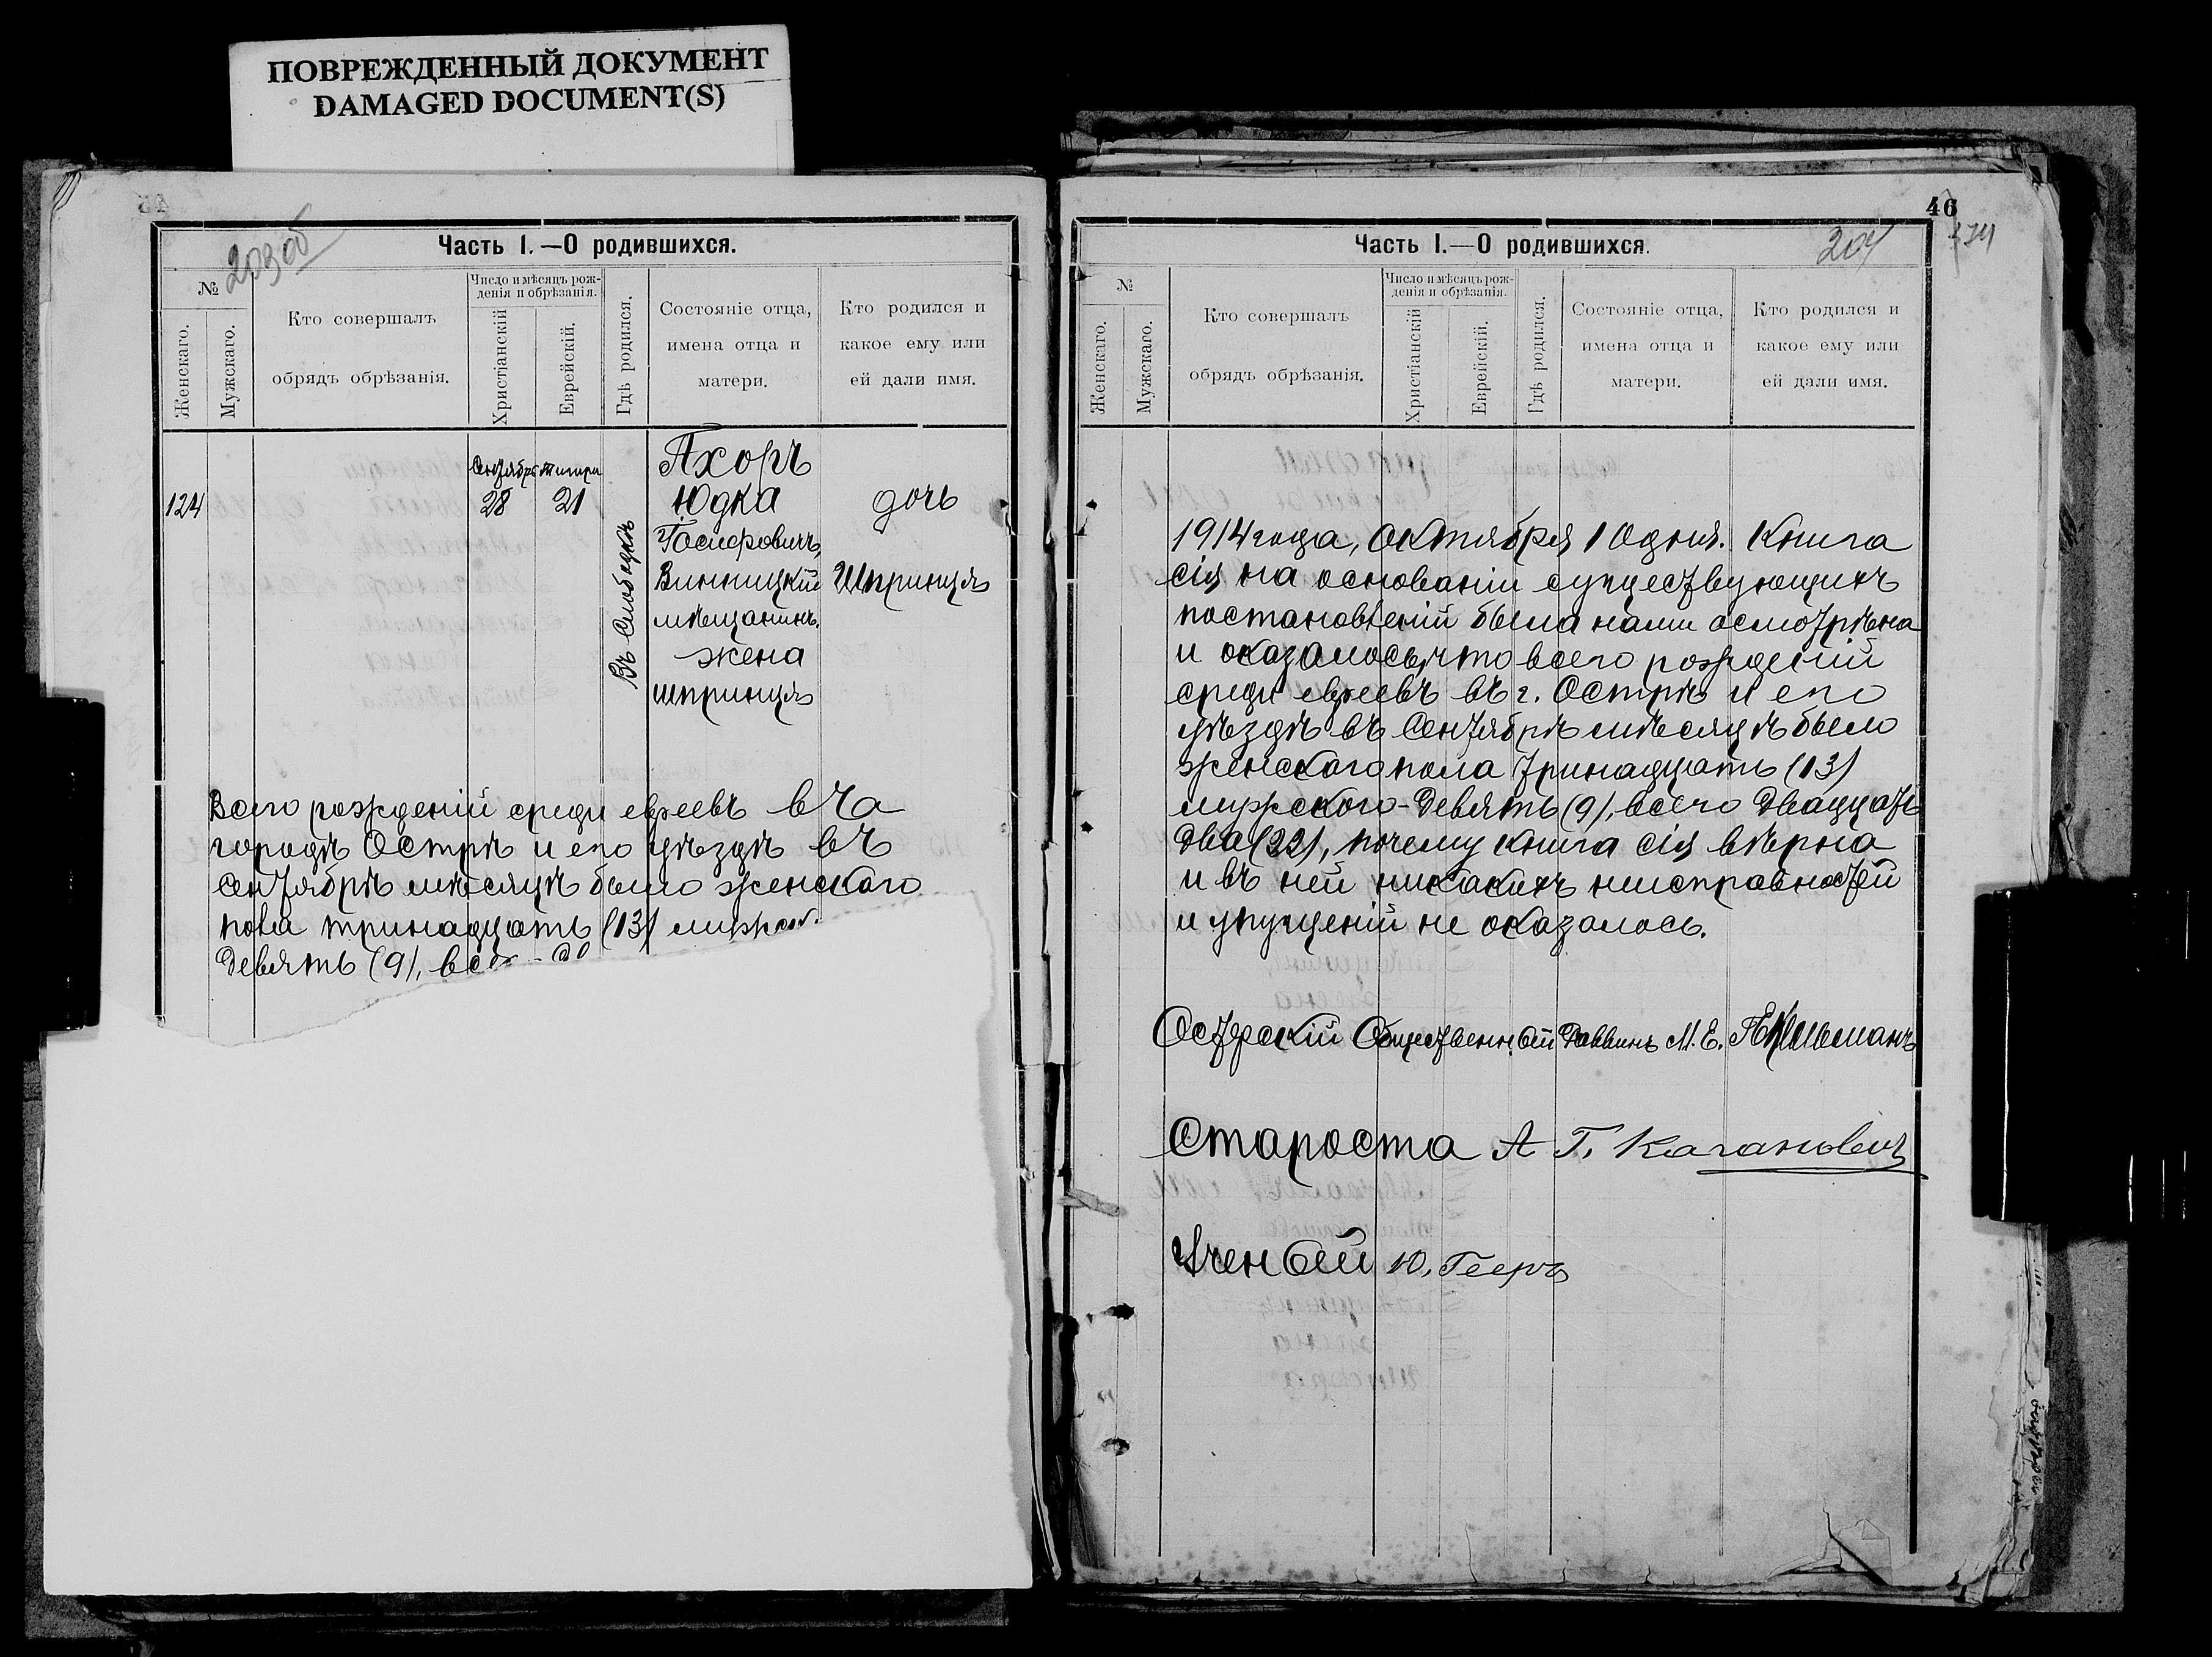 ПОВРЕЖДЕННЫЙ ДОКУМЕНТ
DAMAGED DOCUMENT(S)
203об
Часть I.—О родившихся.
№
Женскаго.
Мужскаго.
Кто совершалъ
обрядъ обрѣзанія.
Число и мѣсяцъ рож-
денія и обрѣзанія.
Христіанскій
Еврейскій.
Гдѣ родился.
Состояніе отца,
имена отца и
матери.
Кто родился и
какое ему или
ей дали имя.
124
Сентябрь
28
Тишри
21
Въ Слободкѣ
Пхоръ
Юдка
Іосифовичъ,
Винницкій
мѣщанинъ.
жена
Шпринця
дочь
Шпринця
Всего рожденій среди евреевъ въ
городѣ Острѣ и его уѣздѣ въ
Сентябрѣ мѣсяцѣ было женскаго
пола тринадцать (13)
Девять (9),
46
204
Часть I.—О родившихся.
№
Женскаго.
Мужскаго.
Кто совершалъ
обрядъ обрѣзанія.
Число и мѣсяцъ рож-
денія и обрѣзанія.
Христіанскій
Еврейскій.
Гдѣ родился.
Состояніе отца,
имена отца и
матери.
Кто родился и
какое ему или
ей дали имя.
1914 года, Октября 10 дня. Книга
сія на основаніи существующихъ
постановленій была нами осмотрѣна
и оказалось, что всего рожденій
среди евреевъ въ г. Острѣ и его
уѣздѣ въ Сентябрѣ мѣсяцѣ было
женскаго пола тринадцать (13)
мужского - Девять (9), всего Двадцать
два (22), почему книга сія вѣрна
и въ ней никакихъ неисправностей
и упущеній не оказалось.
Остерскій Общественный Раввинъ М. Е.
Староста А Г. Кагановичъ
Ученый Ю. Гееръ